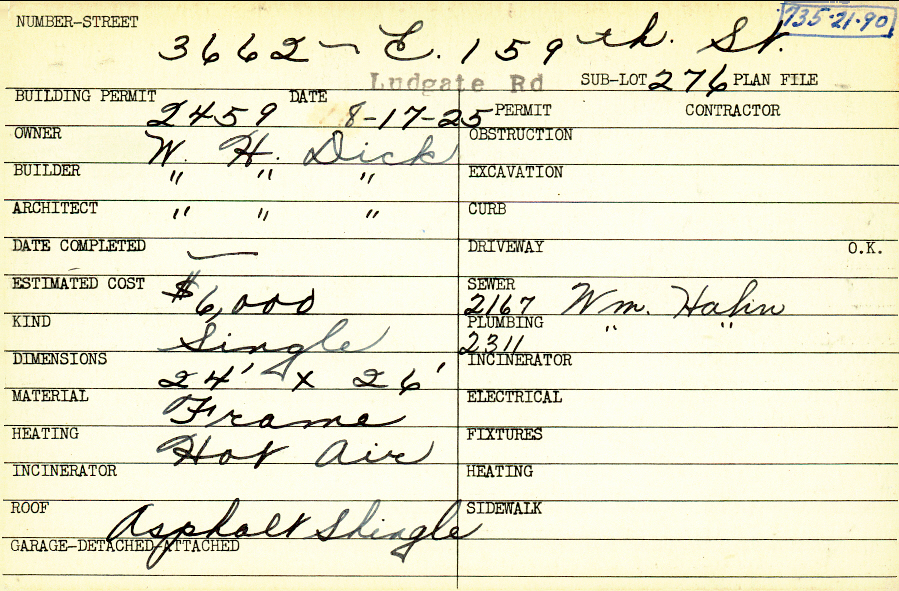 NUMBER-STREET 735-21-90
3662 - E. 159th. St.
Ludgate Rd SUB-LOT 276 PLAN FILE
BUILDING PERMIT 2459 DATE 8-17-25 PERMIT CONTRACTOR
OWNER W. H. Dick OBSTRUCTION
BUILDER " " " EXCAVATION
ARCHITECT " " " CURB
DATE COMPLETED — DRIVEWAY O.K.
ESTIMATED COST $6,000 SEWER 2167 Wm. Hahn
KIND Single PLUMBING 2311 " "
DIMENSIONS 24' x 26' INCINERATOR
MATERIAL Frame ELECTRICAL
HEATING Hot Air FIXTURES
INCINERATOR HEATING
ROOF Asphalt Shingle SIDEWALK
GARAGE-DETACHED-ATTACHED